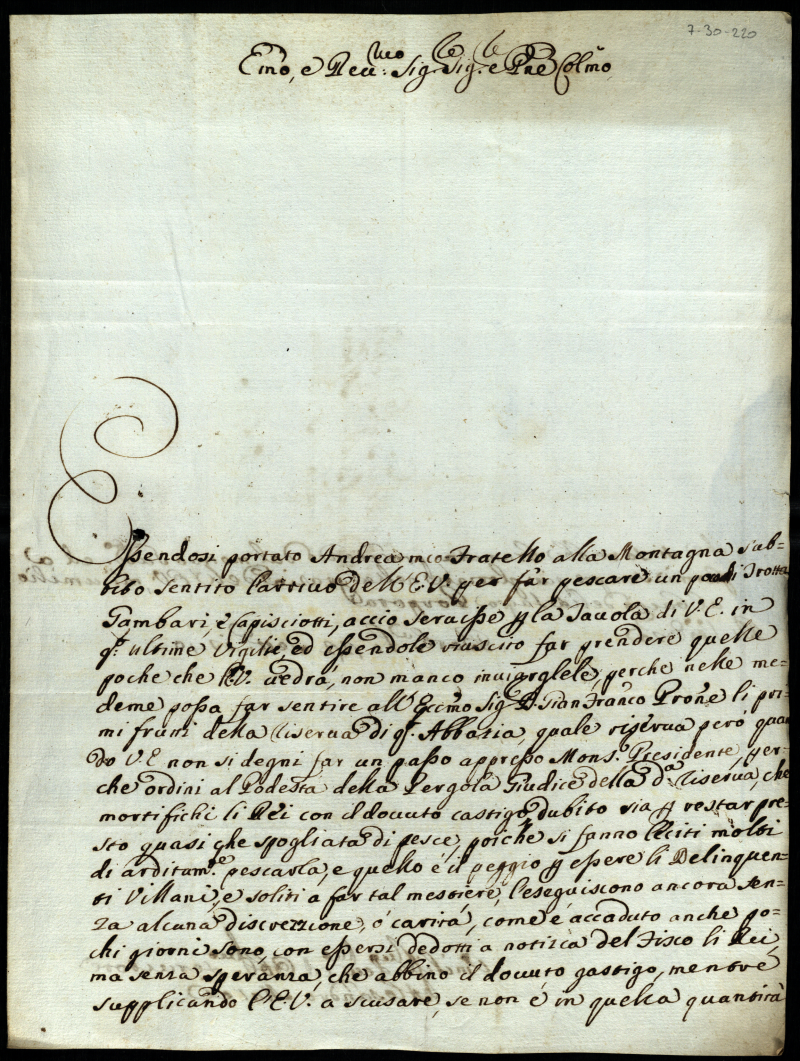 7-30-220
Emo, e Reu.mo Sig.re Sig.re e Pne Colmo
Essendosi portato Andrea mio Fratello alla Montagna sub-
bito sentito l'arrivo dell'E.V. per far pescare un po di Trotta
Gambari, e Capisciotti, accio seruisse p la Tauola di V.E. in
q.e ultime Vigilie, ed essendole riuscito far prendere quelle
poche che l'E.V. uedrá, non manco inuiarglele, perche nelle me-
deme possa far sentire all'Eccmo Sig.r D. Gian Franco Prone li pri-
mi frutti della riserua di q.a Abbatia, quale riserua peró quan
do V.E. non si degni far un passo appresso Mons.r Presidente, per-
che ordini al Podestà della Pergola Giudice della d.a riserua, che
mortifichi li Rei con il dovuto castigo, dubito sia p restar pre-
sto quasi che spogliata di pesce, poiche si fanno leciti molti
di arditam.e pescarla, e quello é il peggio p essere li Delinquen-
ti Villani, e soliti a far tal mestiere, l'eseguiscono ancora sen-
za alcuna discrezzione, ó caritá, come é accaduto anche po-
chi giorni sono, con essersi dedotti a notizia del Fisco li Rei,
ma senza speranza, che abbino il dovuto gastigo, mentre
supplicando l'E.V. a scusare, se non é in quella quantitá